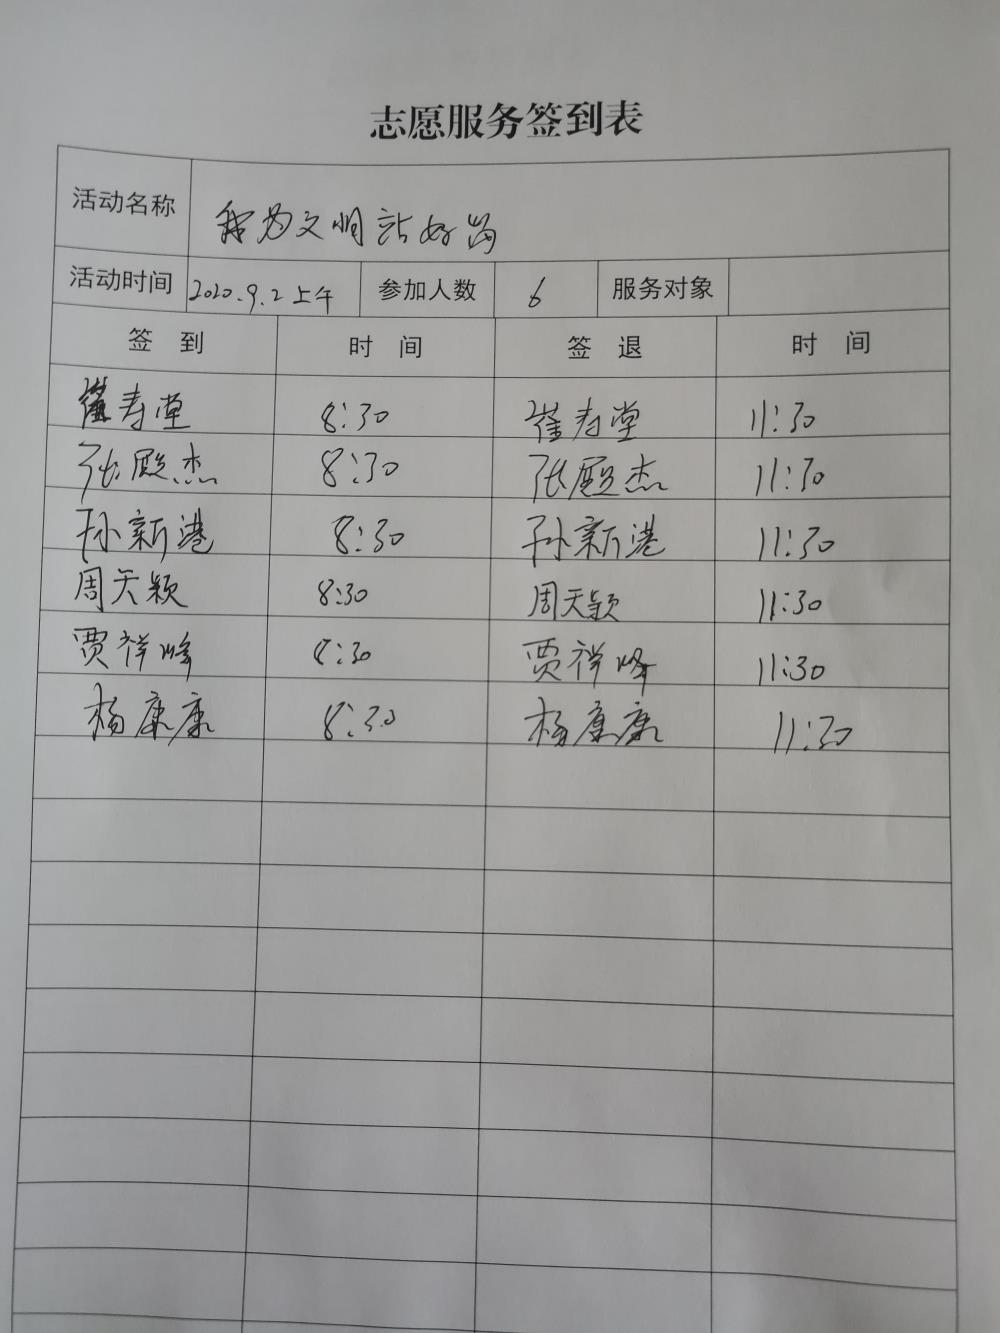 志愿服务签到表
活动名称 我为文明站好岗
活动时间 2020.9.2上午 参加人数 6 服务对象
签到 时间 签退 时间
崔寿堂 8:30 崔寿堂 11:30
张殿杰 8:30 张殿杰 11:30
孙新港 8:30 孙新港 11:30
周天颖 8:30 周天颖 11:30
贾祥峰 8:30 贾祥峰 11:30
杨康康 8:30 杨康康 11:30